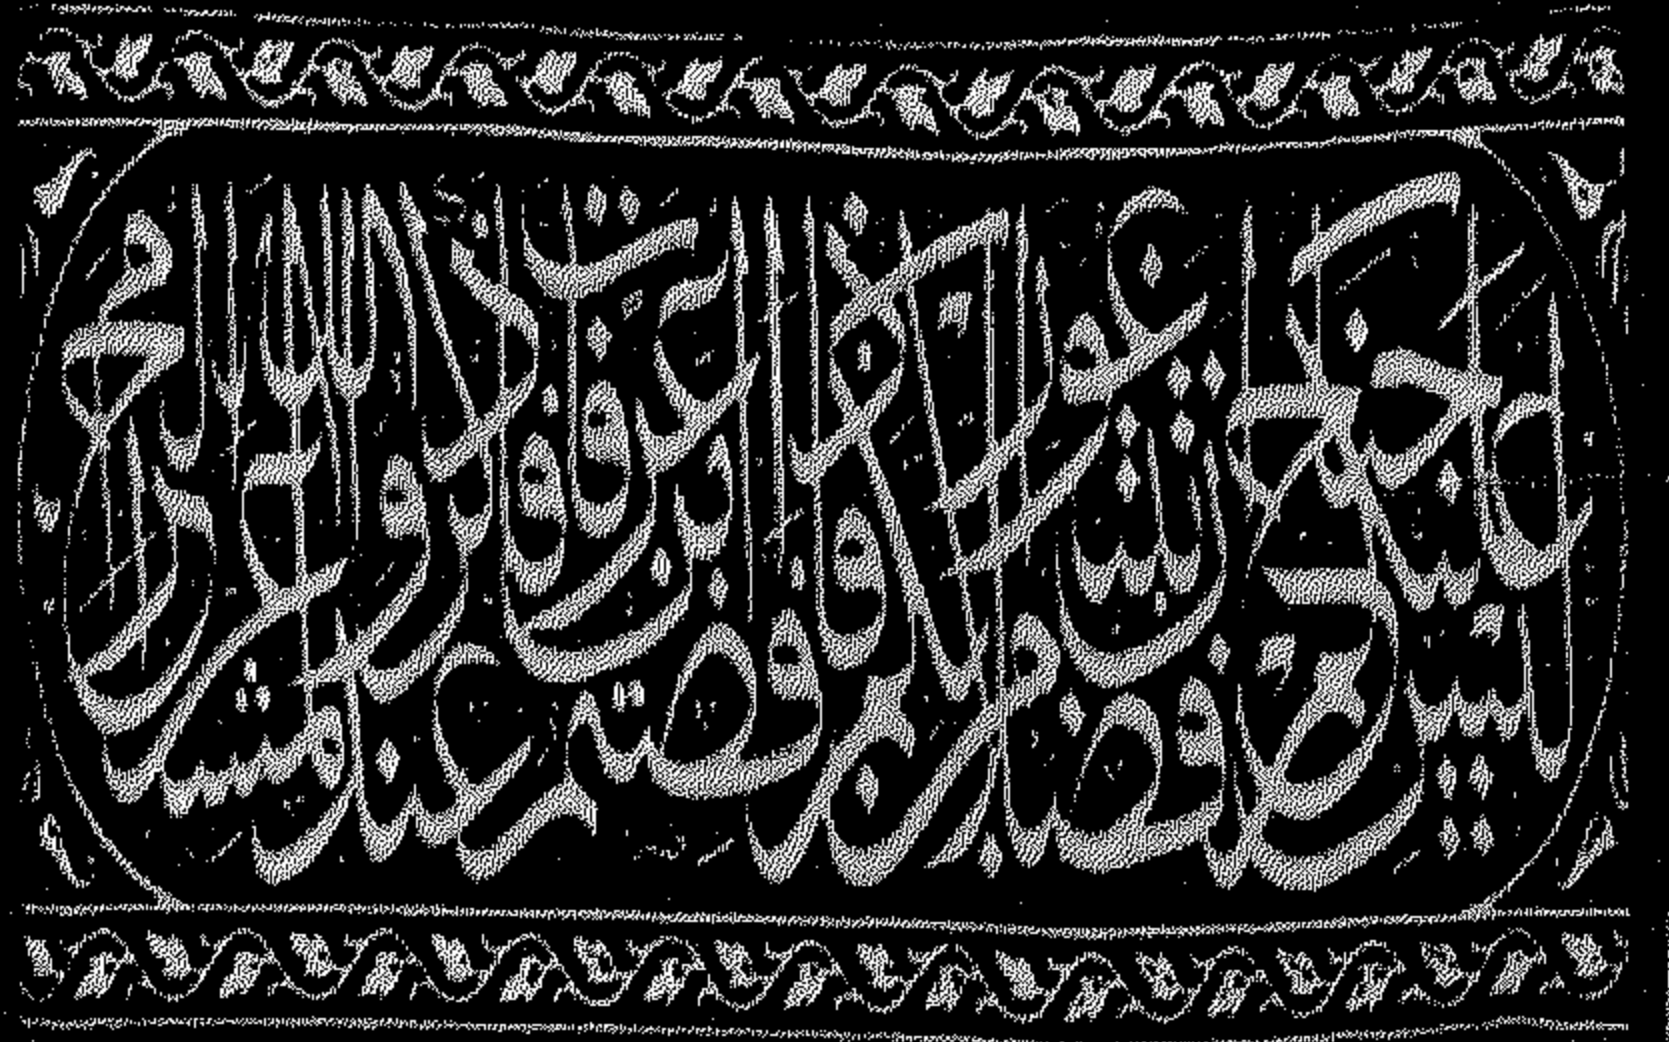 ليس عليكم جناح أن تبتغوا فضلا من ربكم فإذا أفضتم من عرفات فاذكروا الله عند المشعر الحرام